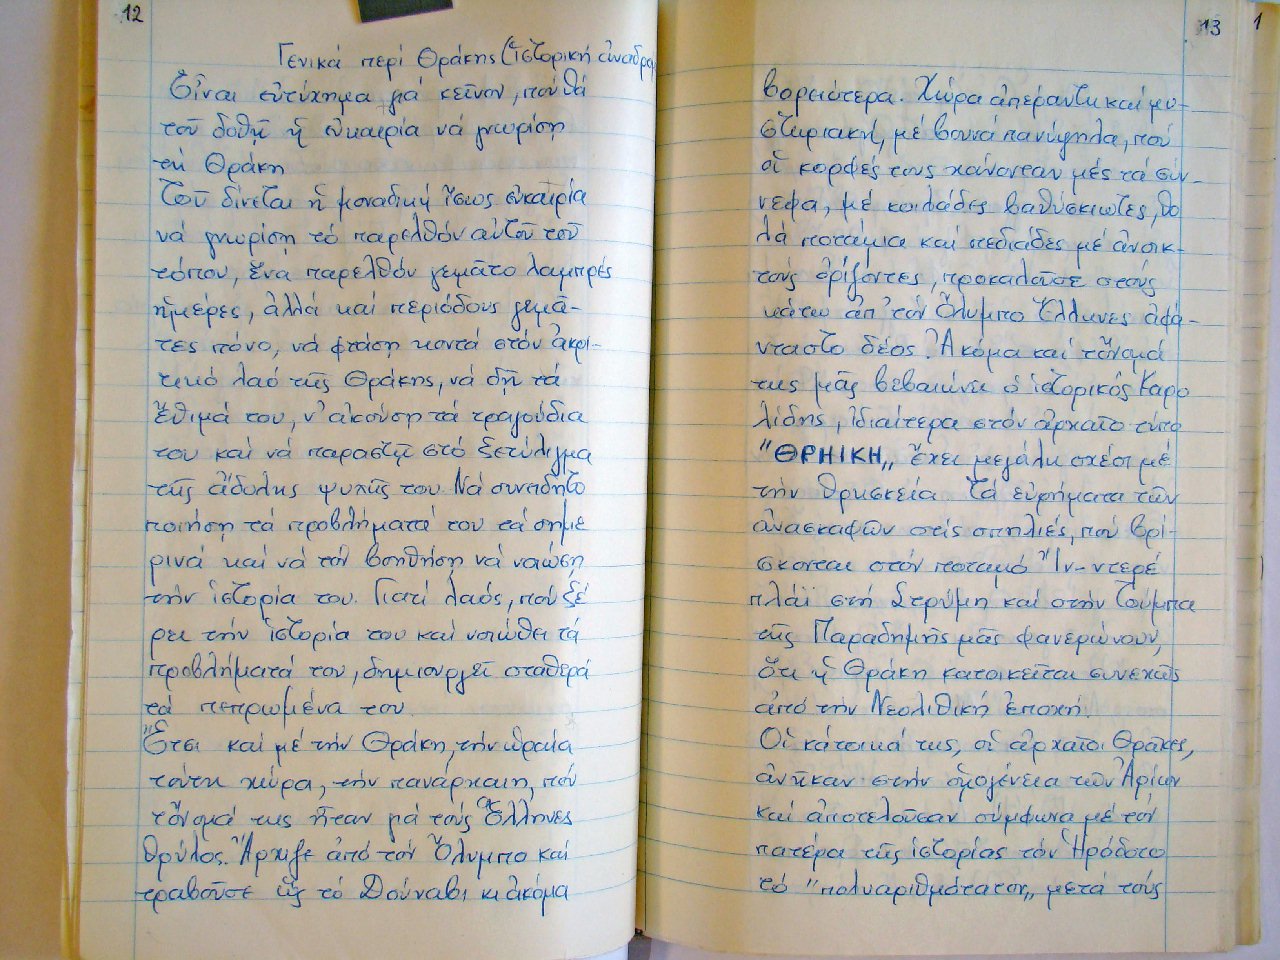 12
Γενικά περί Θράκης (ἱστορική ἀναδρομ
Εἶναι εὐτύχημα γιά κεῖνον, πού θά
τοῦ δοθῇ ἡ εὐκαιρία νά γνωρίσῃ
τή Θράκη
Τοῦ δίνεται ἡ μοναδική ἴσως εὐκαιρία
νά γνωρίσῃ τό παρελθόν αὐτοῦ τοῦ
τόπου, ἕνα παρελθόν γεμᾶτο λαμπρές
ἡμέρες, ἀλλά καί περιόδους γεμᾶ-
τες πόνο, νά φτάσῃ κοντά στόν ἀκρι-
τικό λαό τῆς Θράκης, νά δῇ τά
ἔθιμά του, ν' ἀκούσῃ τά τραγούδια
του καί νά παραστῇ στό ξετύλιγμα
τῆς ἄδολης ψυχῆς του. Νά συνειδητο
ποιήσῃ τά προβλήματά του τά σημε
ρινά καί νά τόν βοηθήσῃ νά νοιώσῃ
τήν ἱστορία του. Γιατί λαός, πού ξέ
ρει τήν ἱστορία του καί νοιώθει τά
προβλήματά του, δημιουργεῖ σταθερά
τά πεπρωμένα του.
Ἔτσι καί μέ τήν Θράκη, τήν ὡραία
τούτη χώρα, τήν πανάρχαιη, πού
τὄνομά της ἦταν γιά τούς Ἕλληνες
θρύλος. Ἄρχιζε ἀπό τόν Ὄλυμπο καί
τραβοῦσε ὥς τό Δούναβι κι ἀκόμα
13
βορειότερα. Χώρα ἀπέραντη καί μυ-
στηριακή, μέ βουνά πανύψηλα, πού
οἱ κορφές τους χάνονταν μές τά σύν-
νεφα, μέ κοιλάδες βαθύσκιωτες, θο
λά ποτάμια καί πεδιάδες μέ ἀνοικ-
τούς ὁρίζοντες, προκαλοῦσε στούς
κάτω ἀπ' τόν Ὄλυμπο Ἕλληνες ἀφά-
νταστο δέος. Ἀκόμα καί τὄνομά
της μᾶς βεβαιώνει ὁ ἱστορικός Καρο
λίδης, ἰδιαίτερα στόν ἀρχαῖο τύπο
"ΘΡΗΙΚΗ„ ἔχει μεγάλη σχέσι μέ
τήν θρησκεία Τά εὑρήματα τῶν
ἀνασκαφῶν στίς σπηλιές, πού βρί-
σκονται στόν ποταμό Ἴν-ντερέ
πλάϊ στή Στρύμη καί στήν Τούμπα
τῆς Παραδημῆς μᾶς φανερώνουν,
ὅτι ἡ Θράκη κατοικεῖται συνεχῶς
ἀπό τήν Νεολιθική ἐποχή.
Οἱ κάτοικοί της, οἱ ἀρχαῖοι Θρᾶκες,
ἀνῆκαν στήν ὁμογένεια τῶν Ἀρίων
καί ἀποτελοῦσαν σύμφωνα μέ τόν
πατέρα τῆς ἱστορίας τόν Ἡρόδοτο
τό "πολυαριθμότατον„ μετά τούς
1